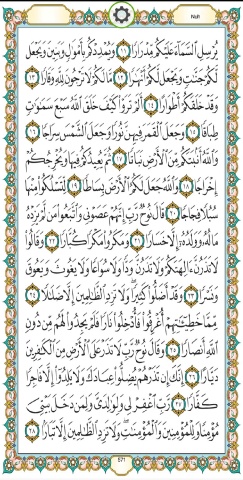 Nuh
يُرْسِلِ السَّمَاءَ عَلَيْكُمْ مِدْرَارًا ۝١١ وَيُمْدِدْكُمْ بِأَمْوَالٍ وَبَنِينَ وَيَجْعَلْ
لَكُمْ جَنَّاتٍ وَيَجْعَلْ لَكُمْ أَنْهَارًا ۝١٢ مَا لَكُمْ لَا تَرْجُونَ لِلَّهِ وَقَارًا ۝١٣
وَقَدْ خَلَقَكُمْ أَطْوَارًا ۝١٤ أَلَمْ تَرَوْا كَيْفَ خَلَقَ اللَّهُ سَبْعَ سَمَاوَاتٍ
طِبَاقًا ۝١٥ وَجَعَلَ الْقَمَرَ فِيهِنَّ نُورًا وَجَعَلَ الشَّمْسَ سِرَاجًا ۝١٦
وَاللَّهُ أَنْبَتَكُمْ مِنَ الْأَرْضِ نَبَاتًا ۝١٧ ثُمَّ يُعِيدُكُمْ فِيهَا وَيُخْرِجُكُمْ
إِخْرَاجًا ۝١٨ وَاللَّهُ جَعَلَ لَكُمُ الْأَرْضَ بِسَاطًا ۝١٩ لِتَسْلُكُوا مِنْهَا
سُبُلًا فِجَاجًا ۝٢٠ قَالَ نُوحٌ رَبِّ إِنَّهُمْ عَصَوْنِي وَاتَّبَعُوا مَنْ لَمْ يَزِدْهُ
مَالُهُ وَوَلَدُهُ إِلَّا خَسَارًا ۝٢١ وَمَكَرُوا مَكْرًا كُبَّارًا ۝٢٢ وَقَالُوا
لَا تَذَرُنَّ آلِهَتَكُمْ وَلَا تَذَرُنَّ وَدًّا وَلَا سُوَاعًا وَلَا يَغُوثَ وَيَعُوقَ
وَنَسْرًا ۝٢٣ وَقَدْ أَضَلُّوا كَثِيرًا وَلَا تَزِدِ الظَّالِمِينَ إِلَّا ضَلَالًا ۝٢٤
مِمَّا خَطِيئَاتِهِمْ أُغْرِقُوا فَأُدْخِلُوا نَارًا فَلَمْ يَجِدُوا لَهُمْ مِنْ دُونِ
اللَّهِ أَنْصَارًا ۝٢٥ وَقَالَ نُوحٌ رَبِّ لَا تَذَرْ عَلَى الْأَرْضِ مِنَ الْكَافِرِينَ
دَيَّارًا ۝٢٦ إِنَّكَ إِنْ تَذَرْهُمْ يُضِلُّوا عِبَادَكَ وَلَا يَلِدُوا إِلَّا فَاجِرًا
كَفَّارًا ۝٢٧ رَبِّ اغْفِرْ لِي وَلِوَالِدَيَّ وَلِمَنْ دَخَلَ بَيْتِيَ
مُؤْمِنًا وَلِلْمُؤْمِنِينَ وَالْمُؤْمِنَاتِ وَلَا تَزِدِ الظَّالِمِينَ إِلَّا تَبَارًا ۝٢٨
571